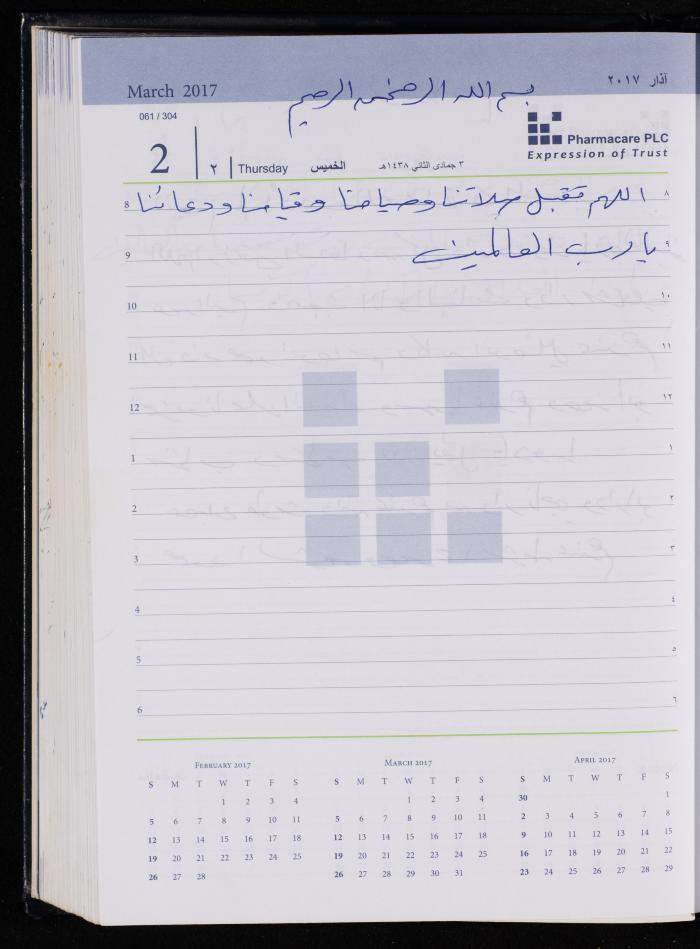 March 2017
آذار ٢٠١٧
بسم الله الرحمن الرحيم
061 / 304
2
٢
Thursday
الخميس
٣ جمادى الثاني ١٤٣٨هـ
Pharmacare PLC
Expression of Trust
8 اللهم تقبل صلاتنا وصيامنا وقيامنا ودعائنا ٨
9 يا رب العالمين ٩
10 ١٠
11 ١١
12 ١٢
1 ١
2 ٢
3 ٣
4 ٤
5 ٥
6 ٦
FEBRUARY 2017
S M T W T F S
1 2 3 4
5 6 7 8 9 10 11
12 13 14 15 16 17 18
19 20 21 22 23 24 25
26 27 28
MARCH 2017
S M T W T F S
1 2 3 4
5 6 7 8 9 10 11
12 13 14 15 16 17 18
19 20 21 22 23 24 25
26 27 28 29 30 31
APRIL 2017
S M T W T F S
30 1
2 3 4 5 6 7 8
9 10 11 12 13 14 15
16 17 18 19 20 21 22
23 24 25 26 27 28 29